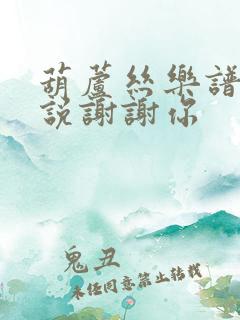 葫蘆絲樂譜
說謝謝你
鬼丑
未經同意禁止轉載